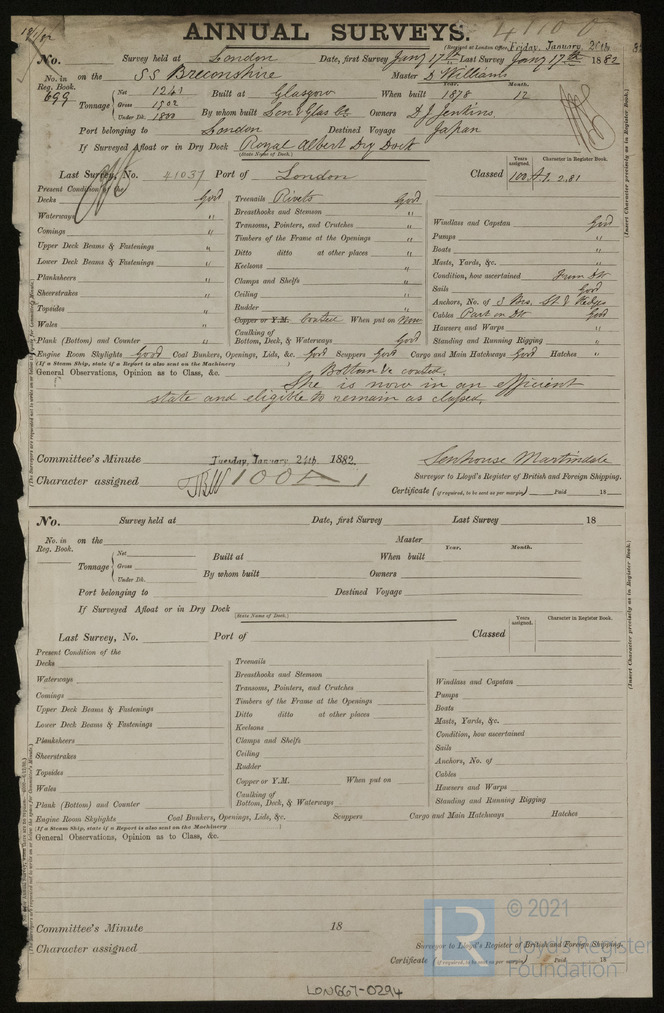 ANNUAL SURVEYS.
(Received at London Office, Friday, January 20th
No. Survey held at London Date, first Survey Jany 17th Last Survey Jany 17th 1882
No. in Reg. Book. 699 on the SS Breconshire Master D Williams
Tonnage Net 1243 Gross 1902 Under Dk. 1800 Built at Glasgow When built Year. 1878 Month. 12
By whom built Lon & Glas Co. Owners D J Jenkins
Port belonging to London Destined Voyage Japan
If Surveyed Afloat or in Dry Dock Royal Albert Dry Dock
(State Name of Dock.)
Last Survey, No. 41037 Port of London Classed Years assigned. 100A1 Character in Register Book. 2.81
(Insert Character precisely as in Register Book.)
Present Condition of the
Decks Good
Waterways "
Comings "
Upper Deck Beams & Fastenings "
Lower Deck Beams & Fastenings "
Planksheers "
Sheerstrakes "
Topsides "
Wales "
Plank (Bottom) and Counter "
Treenails Rivets Good
Breasthooks and Stemson "
Transoms, Pointers, and Crutches "
Timbers of the Frame at the Openings "
Ditto ditto at other places "
Keelsons "
Clamps and Shelfs "
Ceiling "
Rudder "
Copper or Y.M. Coated When put on Now
Caulking of Bottom, Deck, & Waterways Good
Windlass and Capstan Good
Pumps "
Boats "
Masts, Yards, &c. "
Condition, how ascertained From Dk
Sails Good
Anchors, No. of 3 Brs, St. & Kedges
Cables Part on Dk Good
Hawsers and Warps "
Standing and Running Rigging "
Engine Room Skylights Good Coal Bunkers, Openings, Lids, &c. Good Scuppers Good Cargo and Main Hatchways Good Hatches "
(If a Steam Ship, state if a Report is also sent on the Machinery )
General Observations, Opinion as to Class, &c. Bottom &c coated.
She is now in an efficient
state and eligible to remain as classed.
Committee's Minute Tuesday, January 24th 1882.
Senhouse Martindale
Character assigned 100A1
Surveyor to Lloyd's Register of British and Foreign Shipping.
Certificate (if required, to be sent as per margin) Paid 18
No. Survey held at Date, first Survey Last Survey 18
No. in Reg. Book. on the Master
Tonnage Net Gross Under Dk. Built at When built Year. Month.
By whom built Owners
Port belonging to Destined Voyage
If Surveyed Afloat or in Dry Dock
(State Name of Dock.)
Last Survey, No. Port of Classed Years assigned. Character in Register Book.
(Insert Character precisely as in Register Book.)
Present Condition of the
Decks
Waterways
Comings
Upper Deck Beams & Fastenings
Lower Deck Beams & Fastenings
Planksheers
Sheerstrakes
Topsides
Wales
Plank (Bottom) and Counter
Treenails
Breasthooks and Stemson
Transoms, Pointers, and Crutches
Timbers of the Frame at the Openings
Ditto ditto at other places
Keelsons
Clamps and Shelfs
Ceiling
Rudder
Copper or Y.M. When put on
Caulking of Bottom, Deck, & Waterways
Windlass and Capstan
Pumps
Boats
Masts, Yards, &c.
Condition, how ascertained
Sails
Anchors, No. of
Cables
Hawsers and Warps
Standing and Running Rigging
Engine Room Skylights Coal Bunkers, Openings, Lids, &c. Scuppers Cargo and Main Hatchways Hatches
(If a Steam Ship, state if a Report is also sent on the Machinery )
General Observations, Opinion as to Class, &c.
Committee's Minute 18
Character assigned
Surveyor to Lloyd's Register of British and Foreign Shipping.
Certificate (if required, to be sent as per margin) Paid 18
LR © 2021
Lloyd's Register
Foundation
LON667-0294